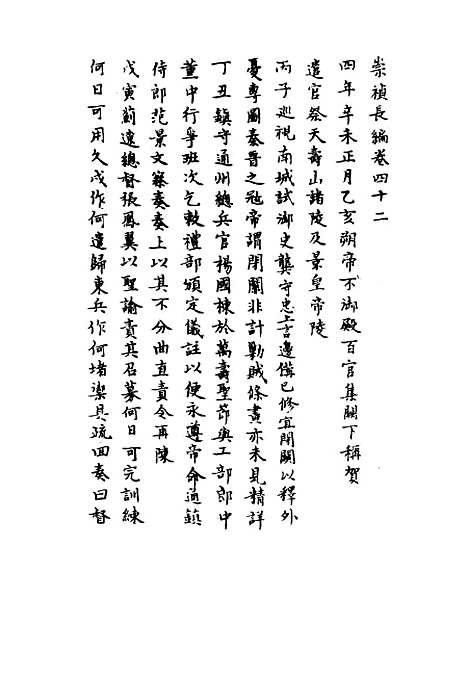 崇禎長編卷四十二
四年辛未正月乙亥朔帝不御殿百官集闕下稱賀
遣官祭天壽山諸陵及景皇帝陵
丙子巡視南城試御史龔守忠上言邊備已修宜閉關以釋外
憂專圖秦晉之寇帝謂閉關非計勦賊條畫亦未見精詳
丁丑鎮守通州總兵官楊國棟於萬壽聖節與工部郎中
董中行爭班次乞敕禮部頒定儀註以便永遵帝命通鎮
侍郎范景文察奏奏上以其不分曲直責令再陳
戊寅薊遼總督張鳳翼以聖諭責其召募何日可完訓練
何日可用久戍作何遣歸東兵作何堵禦具疏回奏曰督